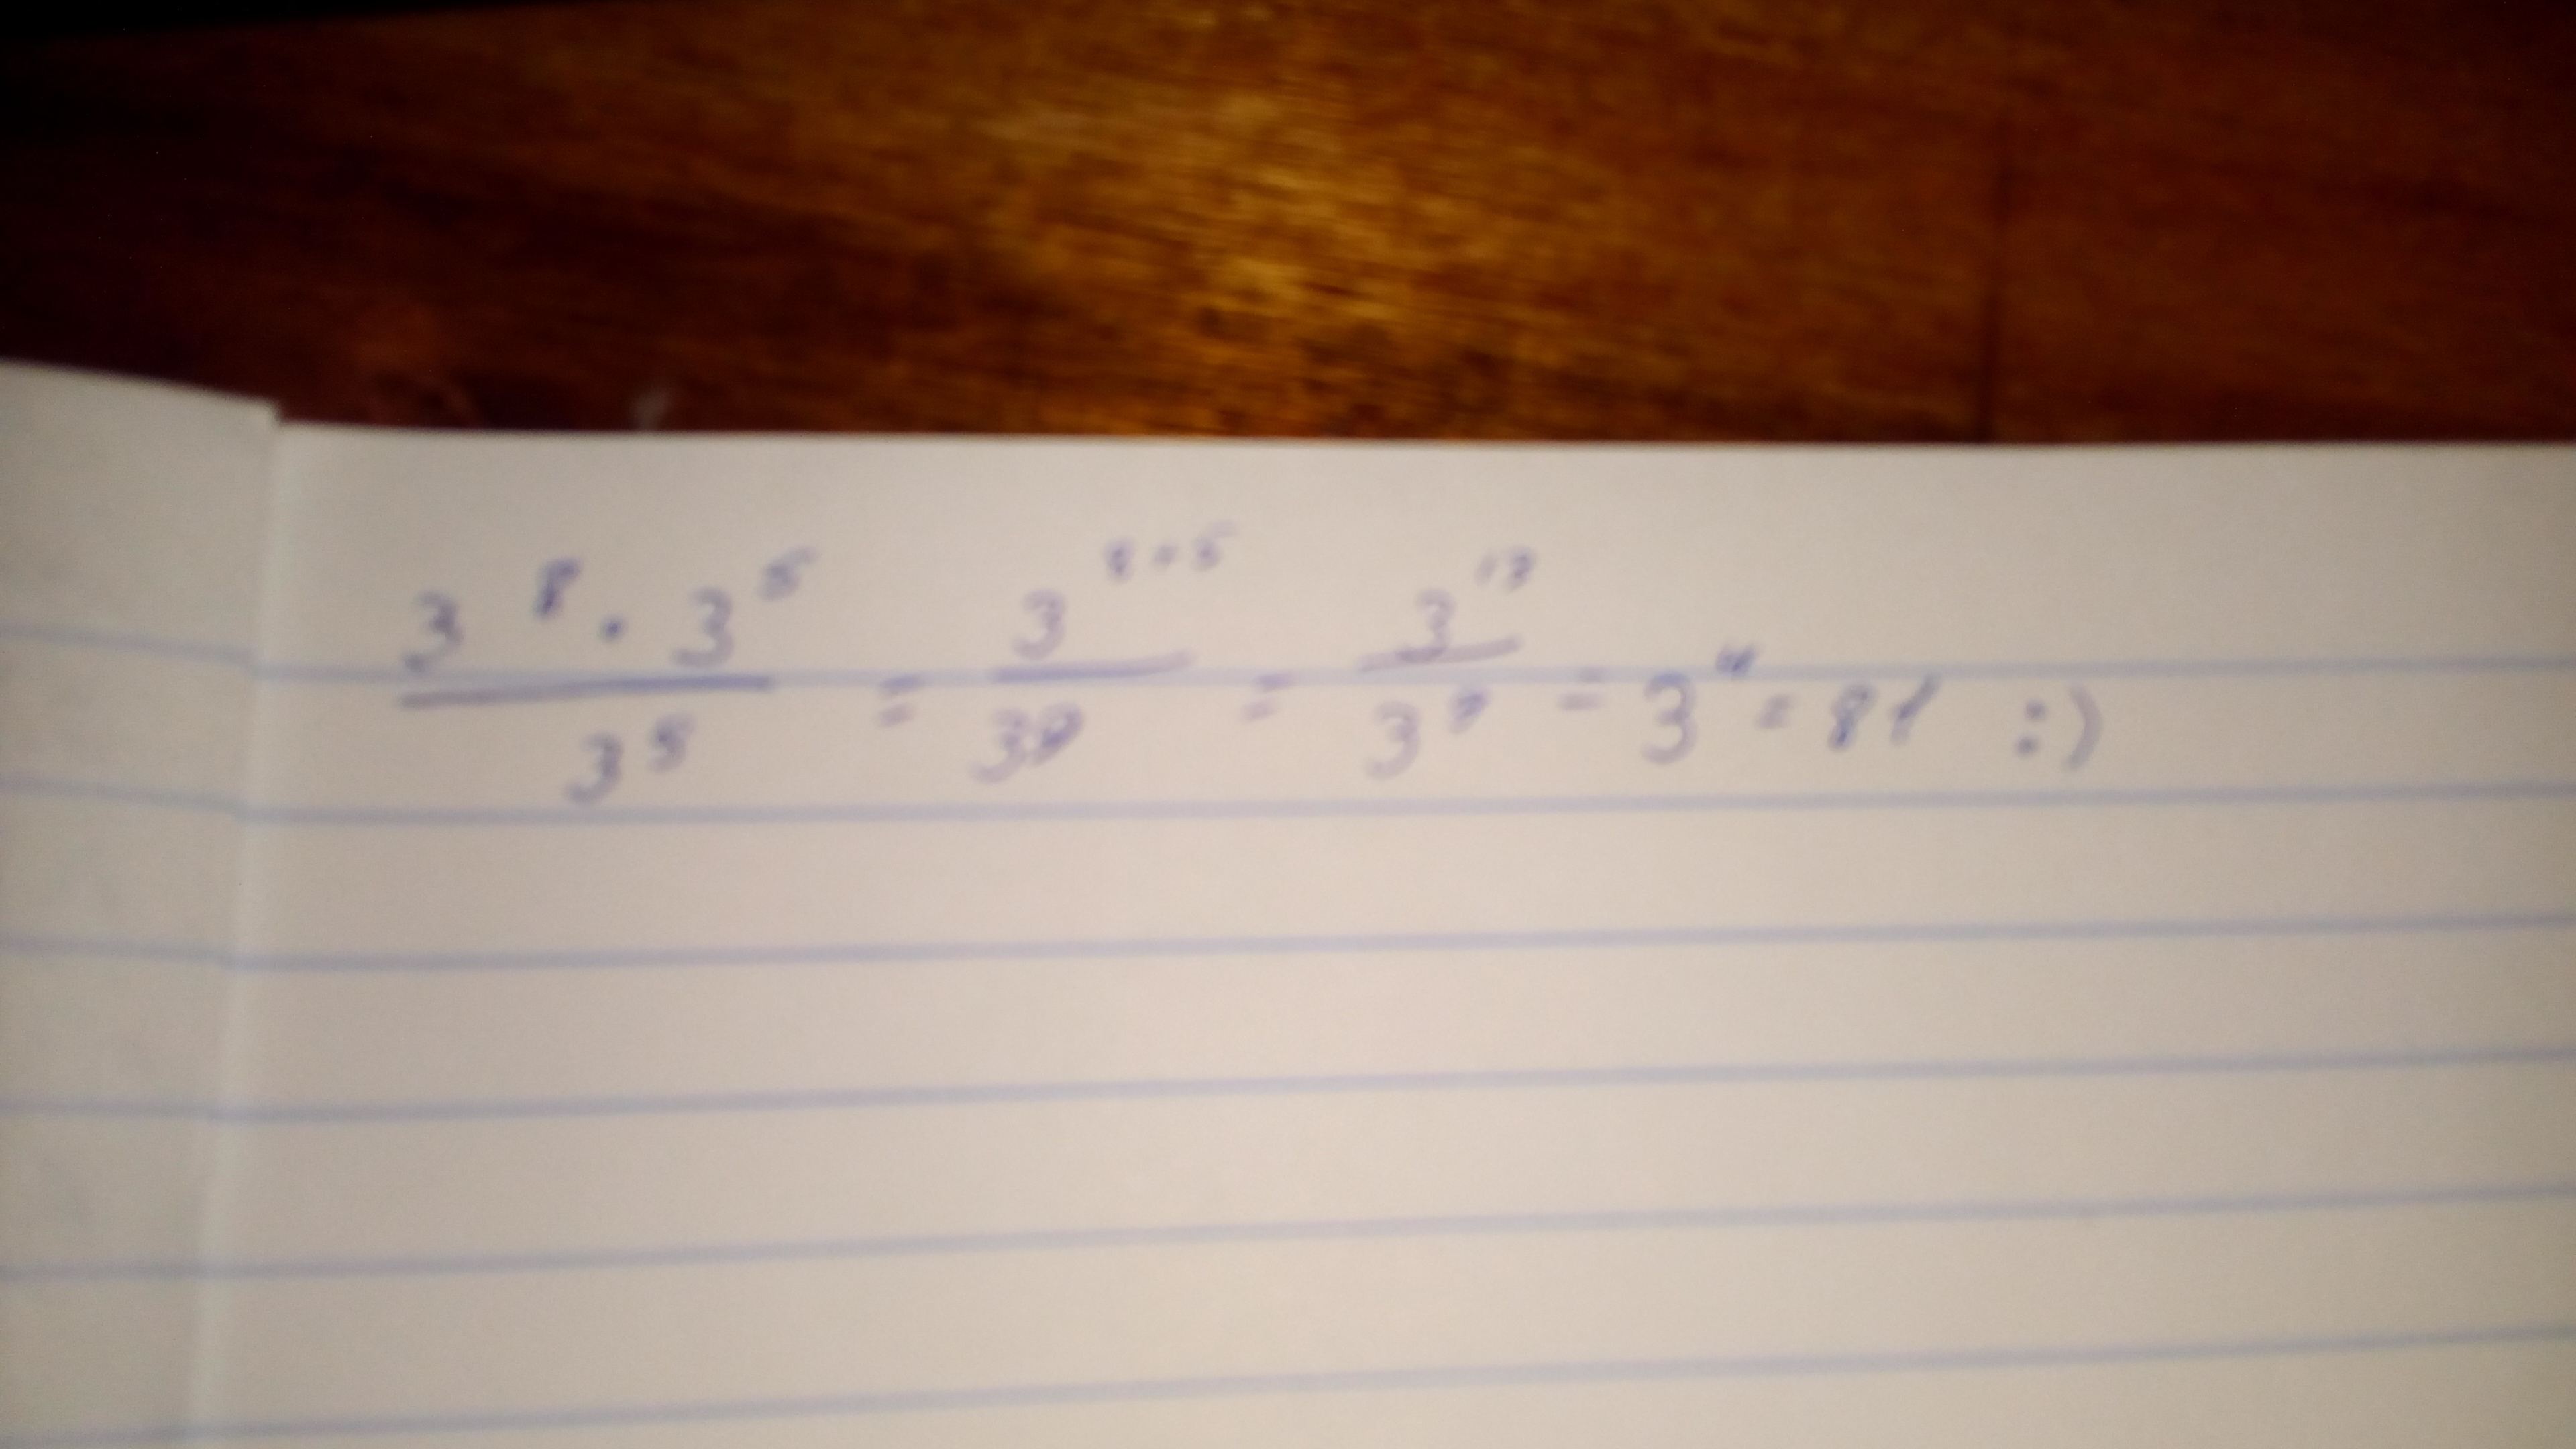 3^8 · 3^5 / 3^9 = 3^(8+5) / 3^9 = 3^13 / 3^9 = 3^4 = 81 :)